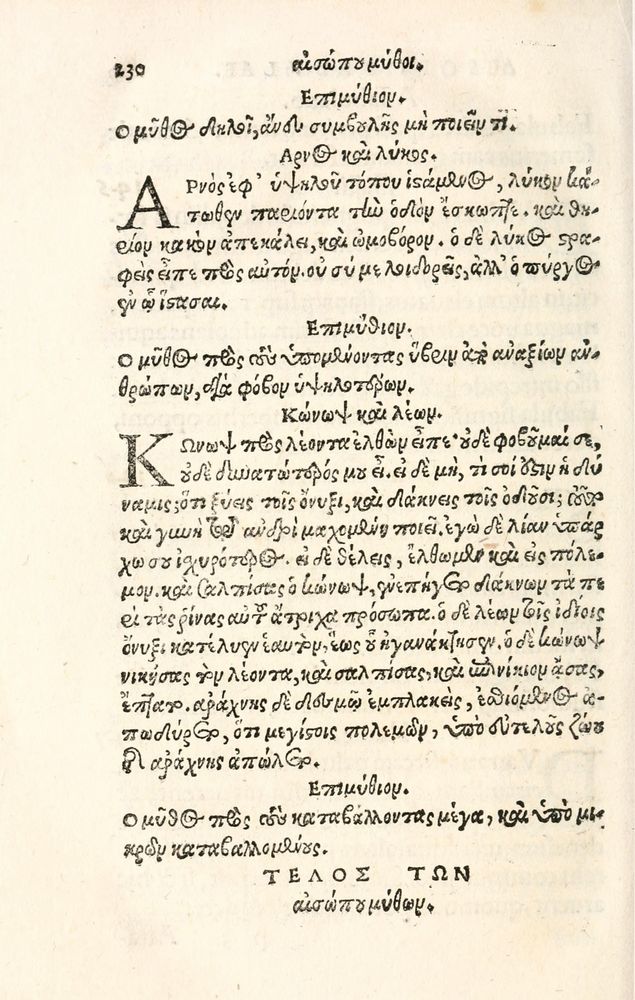 230 αἰσώπου μύθοι.
Ἐπιμύθιον.
Ο μῦθος δηλοῖ, ἄνευ συμβουλῆς μὴ ποιεῖν τί.
Αρνὸς καὶ λύκος.
ΑΡνὸς ἐφ' ὑψηλοῦ τόπου ἱστάμενος, λύκον κά-
τωθεν παριόντα τὴν ὁδὸν ἔσκωπτε. καὶ θη-
ρίον κακὸν ἀπεκάλει, καὶ ὠμοβόρον. ὁ δὲ λύκος στρα-
φεὶς εἶπε πρὸς αὐτόν. οὐ σύ με λοιδορεῖς, ἀλλ' ὁ πύργος
ἐν ᾧ ἵστασαι.
Ἐπιμύθιον.
Ο μῦθος πρὸς τοὺς ὑπομένοντας ὕβριν ἀπὸ ἀναξίων ἀν-
θρώπων, διὰ φόβον ὑψηλοτέρων.
Κώνωψ καὶ λέων.
ΚΩνωψ πρὸς λέοντα ἐλθὼν εἶπε· οὐδὲ φοβοῦμαί σε,
οὐδὲ δυνατώτερός μου εἶ. εἰ δὲ μὴ, τί σοί ἐστιν ἡ δύ
ναμις; ὅτι ξύεις τοῖς ὄνυξι, καὶ δάκνεις τοῖς ὀδοῦσι; τοῦτο
καὶ γυνὴ τῷ ἀνδρὶ μαχομένη ποιεῖ. ἐγὼ δὲ λίαν ὑπάρ
χω σου ἰσχυρότερος. εἰ δὲ θέλεις, ἔλθωμεν καὶ εἰς πόλε-
μον. καὶ σαλπίσας ὁ κώνωψ, ἐνεπήγετο δάκνων τὰ πε
ρὶ τὰς ῥῖνας αὐτοῦ ἄτριχα πρόσωπα. ὁ δὲ λέων τοῖς ἰδίοις
ὄνυξι κατέλυεν ἑαυτὸν, ἕως οὗ ἠγανάκτησεν. ὁ δὲ κώνωψ
νικήσας τὸν λέοντα, καὶ σαλπίσας, καὶ ἐπινίκιον ᾄσας,
ἔπτατο. ἀράχνης δὲ δεσμῷ ἐμπλακεὶς, ἐσθιόμενος ἀ-
πωδύρετο, ὅτι μεγίστοις πολεμῶν, ὑπὸ εὐτελοῦς ζώου
τῆς ἀράχνης ἀπώλετο.
Ἐπιμύθιον.
Ο μῦθος πρὸς τοὺς καταβάλλοντας μέγα, καὶ ὑπὸ μι-
κρῶν καταβαλλομένους.
ΤΕΛΟΣ ΤΩΝ
αἰσώπου μύθων.